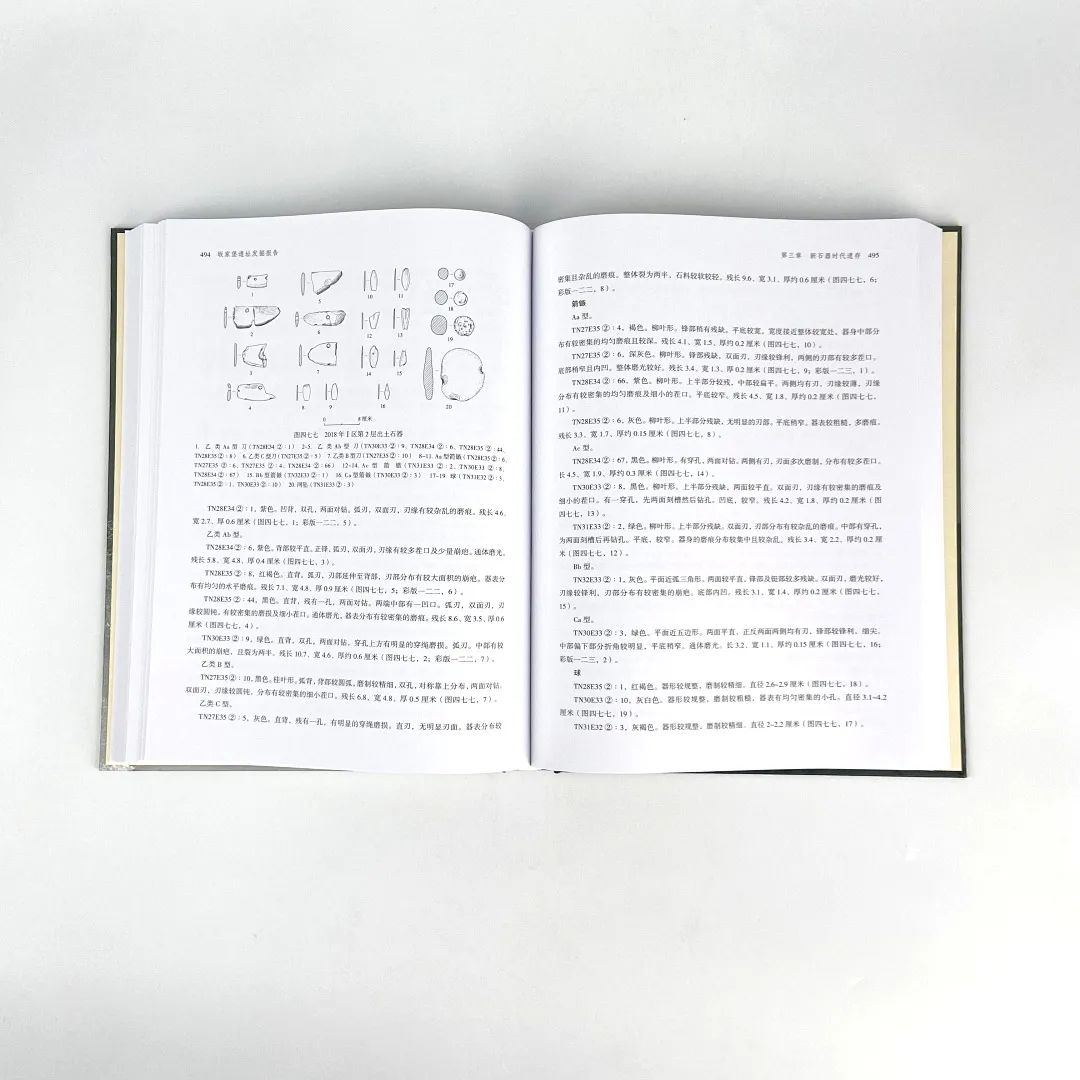 494 坂家堡遗址发掘报告
1
5
10
11
17
18
2
6
12
13
19
3
7
14
15
4
8
9
16
20
0 8厘米
图四七七 2018年Ⅰ区第2层出土石器
1. 乙类Aa型刀（TN28E34②：1） 2~5. 乙类Ab型刀（TN30E33②：9、TN28E34②：6、TN28E35②：44、
TN28E35②：8） 6. 乙类C型刀（TN27E35②：5） 7. 乙类B型刀（TN27E35②：10） 8~11. Aa型箭镞（TN28E35②：6、
TN27E35②：6、TN27E35②：4、TN28E34②：66） 12~14. Ac型箭镞（TN31E33②：2、TN30E33②：8、
TN28E34②：67） 15. Bb型箭镞（TN32E33②：1） 16. Ca型箭镞（TN30E33②：3） 17~19. 球（TN31E32②：3、
TN28E35②：1、TN30E33②：10） 20. 网坠（TN31E33②：3）
TN28E34②：1，紫色。凹背，双孔，两面对钻，弧刃，双面刃，刃缘有较杂乱的磨痕。残长4.6、
宽2.7、厚0.6厘米（图四七七，1；彩版一二二，5）。
乙类Ab型。
TN28E34②：6，紫色。背部较平直，正锋，弧刃，双面刃，刃缘有较多茬口及少量崩疤。通体磨光。
残长5.8、宽4.8、厚0.4厘米（图四七七，3）。
TN28E35②：8，红褐色。直背，弧刃，刃部延伸至背部，刃部分布有较大面积的崩疤。器表分
布有均匀的水平磨痕。残长7.1、宽4.8、厚0.9厘米（图四七七，5；彩版一二二，6）。
TN28E35②：44，黑色。直背，残有一孔，两面对钻。两端中部有一凹口。弧刃，双面刃，刃
缘较圆钝，有较密集的磨损及细小茬口。通体磨光，器表分布有较密集的磨痕。残长8.6、宽3.5、厚0.6
厘米（图四七七，4）。
TN30E33②：9，绿色。直背，双孔，两面对钻，穿孔上方有明显的穿绳磨损。弧刃。中部有较
大面积的崩疤，且裂为两半。残长10.7、宽4.6、厚约0.6厘米（图四七七，2；彩版一二二，7）。
乙类B型。
TN27E35②：10，黑色。桂叶形，弧背，背部较圆弧，磨制较精细，双孔，对称基上分布，两面对钻。
双面刃，刃缘较圆钝，分布有较密集的细小茬口。残长6.8、宽4.8、厚0.5厘米（图四七七，7）。
乙类C型。
TN27E35②：5，灰色。直背，残有一孔，有明显的穿绳磨损。直刃，无明显刃面。器表分布较
第三章 新石器时代遗存 495
密集且杂乱的磨痕。整体裂为两半，石料较软较轻。残长9.6、宽3.1、厚约0.6厘米（图四七七，6；
彩版一二二，8）。
箭镞
Aa型。
TN27E35②：4，褐色。柳叶形。锋部稍有残缺。平底较宽，宽度接近整体较宽处。器身中部分
布有较密集的均匀磨痕且较深。残长4.1、宽1.5、厚约0.2厘米（图四七七，10）。
TN27E35②：6，深灰色。柳叶形。锋部残缺，双面刃，刃缘较锋利，两侧的刃部有较多茬口。
底部稍窄且内凹。整体磨光较好。残长3.4、宽1.3、厚约0.2厘米（图四七七，9；彩版一二三，1）。
TN28E34②：66，紫色。柳叶形。上半部分较残，中部较扁平，两侧均有刃，刃缘较薄，刃缘
分布有较密集的均匀磨痕及细小的茬口。平底较窄。残长4.5、宽1.8、厚约0.2厘米（图四七七，
11）。
TN28E35②：6，灰色。柳叶形。上半部分残缺，无明显的刃部。平底稍窄。器表较粗糙，多磨痕。
残长3.3、宽1.7、厚约0.15厘米（图四七七，8）。
Ac型。
TN28E34②：67，黑色。柳叶形，有穿孔，两面对钻。两侧有刃，刃面多次磨制，分布有较多茬口。
长4.5、宽1.9、厚约0.3厘米（图四七七，14）。
TN30E33②：8，黑色。柳叶形。上半部分残缺，两面较平直。双面刃，刃缘有较密集的磨痕及
细小的茬口。有一穿孔，先两面刻槽然后钻孔。凹底，较窄。残长4.2、宽1.8、厚约0.2厘米（图
四七七，13）。
TN31E33②：2，绿色。柳叶形。上半部分残缺。双面刃，刃部分布有较杂乱的磨痕。中部有穿孔，
为两面刻槽后再钻孔。平底，较窄。器身的磨痕分布较集中且较杂乱。残长3.4、宽2.2、厚约0.2厘
米（图四七七，12）。
Bb型。
TN32E33②：1，灰色。平面近弧三角形，两面较平直，锋部及铤部较多残缺。双面刃，磨光较好，
刃缘较锋利，刃部分布有较密集的崩疤。底部内凹。残长3.1、宽1.4、厚约0.2厘米（图四七七，
15）。
Ca型。
TN30E33②：3，绿色。平面近五边形，两面平直，正反两面两侧均有刃，锋部较锋利，细尖。
中部偏下部分折角较明显，平底稍窄。通体磨光。长3.2、宽1.1、厚约0.15厘米（图四七七，16；
彩版一二三，2）。
球
TN28E35②：1，红褐色。器形较规整，磨制较精细。直径2.6~2.9厘米（图四七七，18）。
TN30E33②：10，灰白色。器形较规整，磨制较粗糙，器表有均匀密集的小孔。直径3.1~4.2
厘米（图四七七，19）。
TN31E32②：3，灰褐色。器形较规整，磨制较精细。直径2~2.2厘米（图四七七，17）。